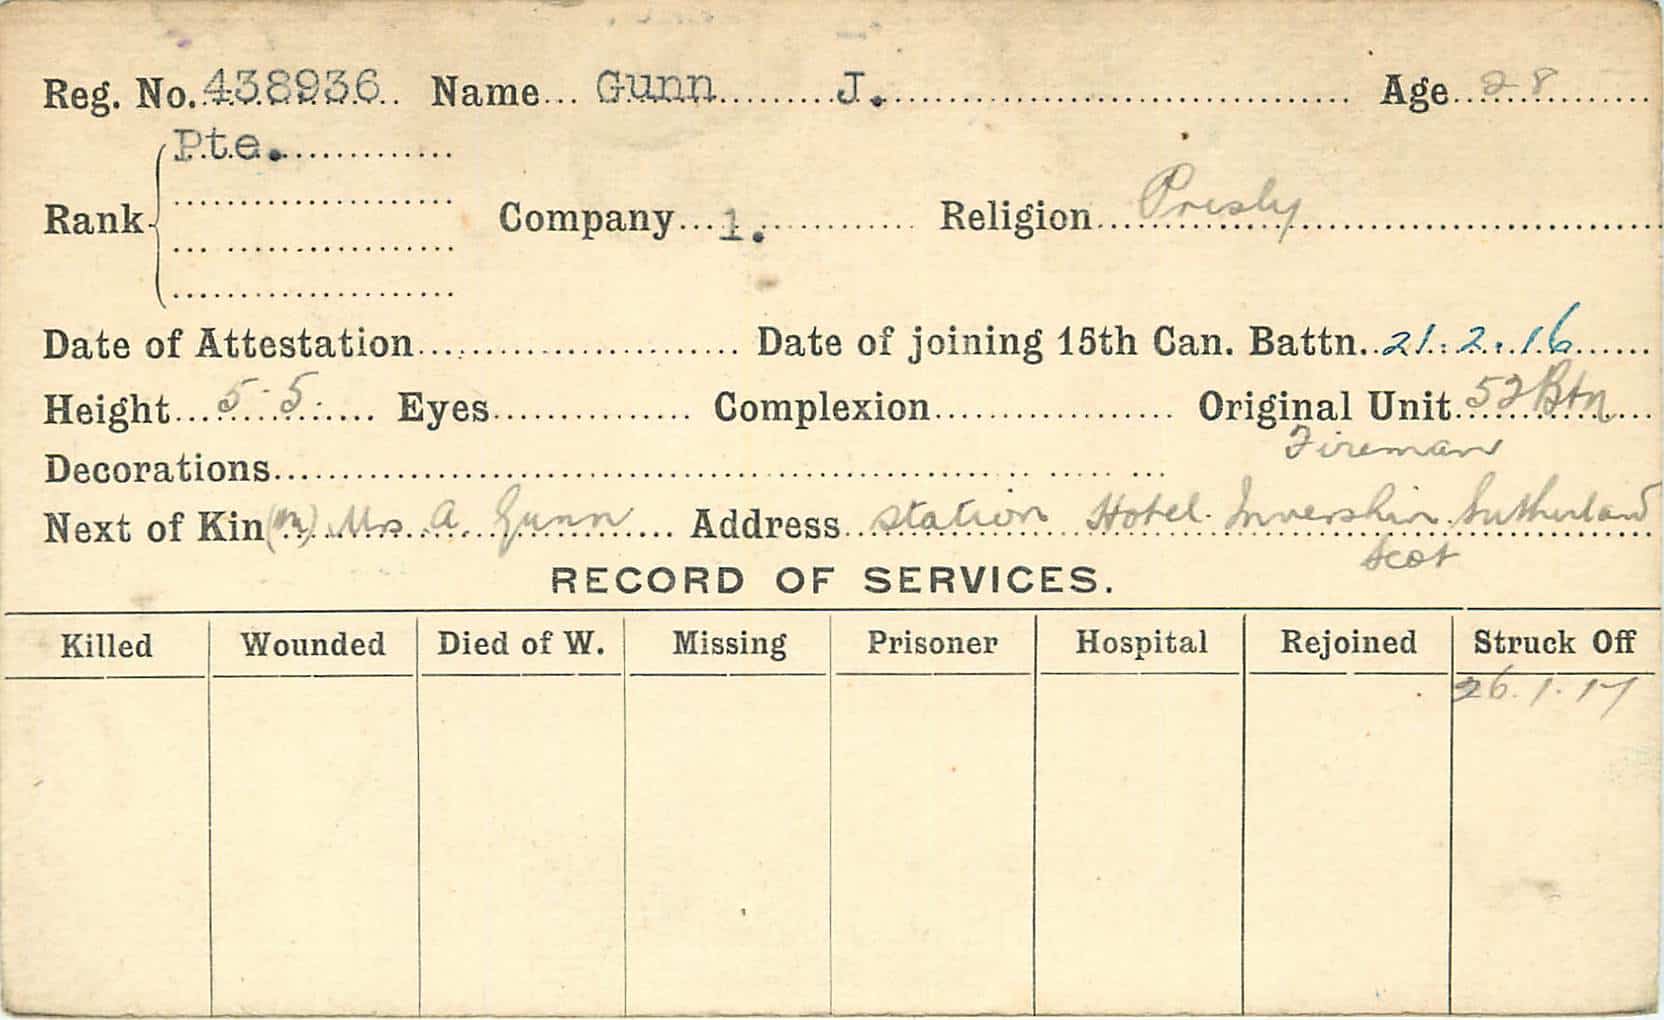 Reg. No. 438936 Name Gunn J. Age 28
Pte.
Rank Company 1. Religion Presby
Date of Attestation Date of joining 15th Can. Battn. 21.2.16
Height 5-5 Eyes Complexion Original Unit 52 Btn
Fireman
Decorations
Next of Kin (m) Mrs. A. Gunn Address Station Hotel. Invershin. Sutherland
Scot
RECORD OF SERVICES.
Killed Wounded Died of W. Missing Prisoner Hospital Rejoined Struck Off
26.1.17